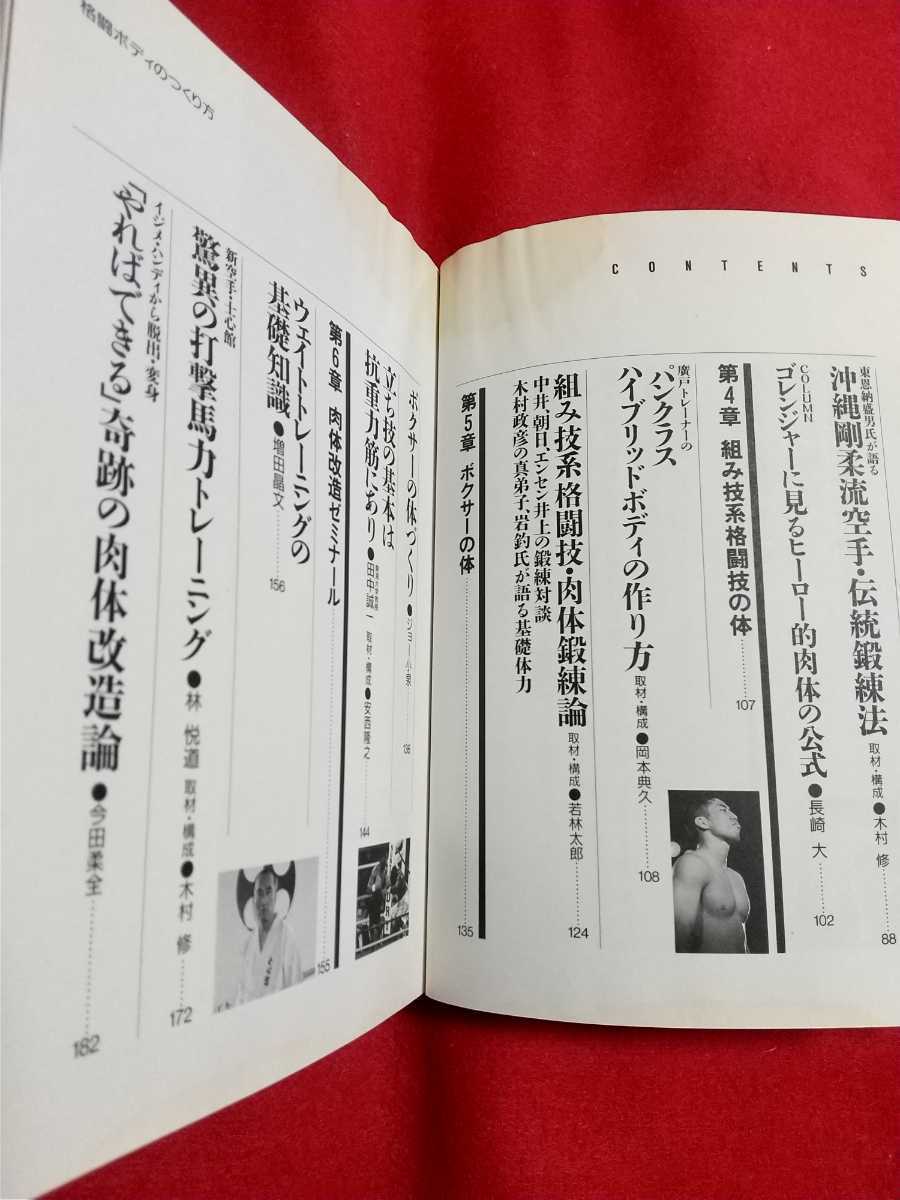 CONTENTS
東恩納盛男氏が語る
沖縄剛柔流空手・伝統鍛練法
取材・構成●木村 修
88
COLUMN
ゴレンジャーに見るヒーロー的肉体の公式●長崎 大
102
第4章 組み技系格闘技の体
107
廣戸トレーナーの
パンクラス
ハイブリッドボディの作り方
取材・構成●岡本典久
108
組み技系格闘技・肉体鍛練論
取材・構成●若林太郎
中井、朝日、エンセン井上の鍛練対談
木村政彦の真弟子、岩釣氏が語る基礎体力
124
第5章 ボクサーの体
135
格闘ボディのつくり方
ボクサーの体づくり●ジョー小泉
136
立ち技の基本は
抗重力筋にあり●田中誠一
取材・構成●安西隆之
144
第6章 肉体改造ゼミナール
155
ウェイトトレーニングの
基礎知識●増田晶文
156
新空手・士心館
驚異の打撃馬力トレーニング●林 悦道
取材・構成●木村 修
172
イジメ・ハンディから脱出・変身
「やればできる」奇跡の肉体改造論●今田柔全
182